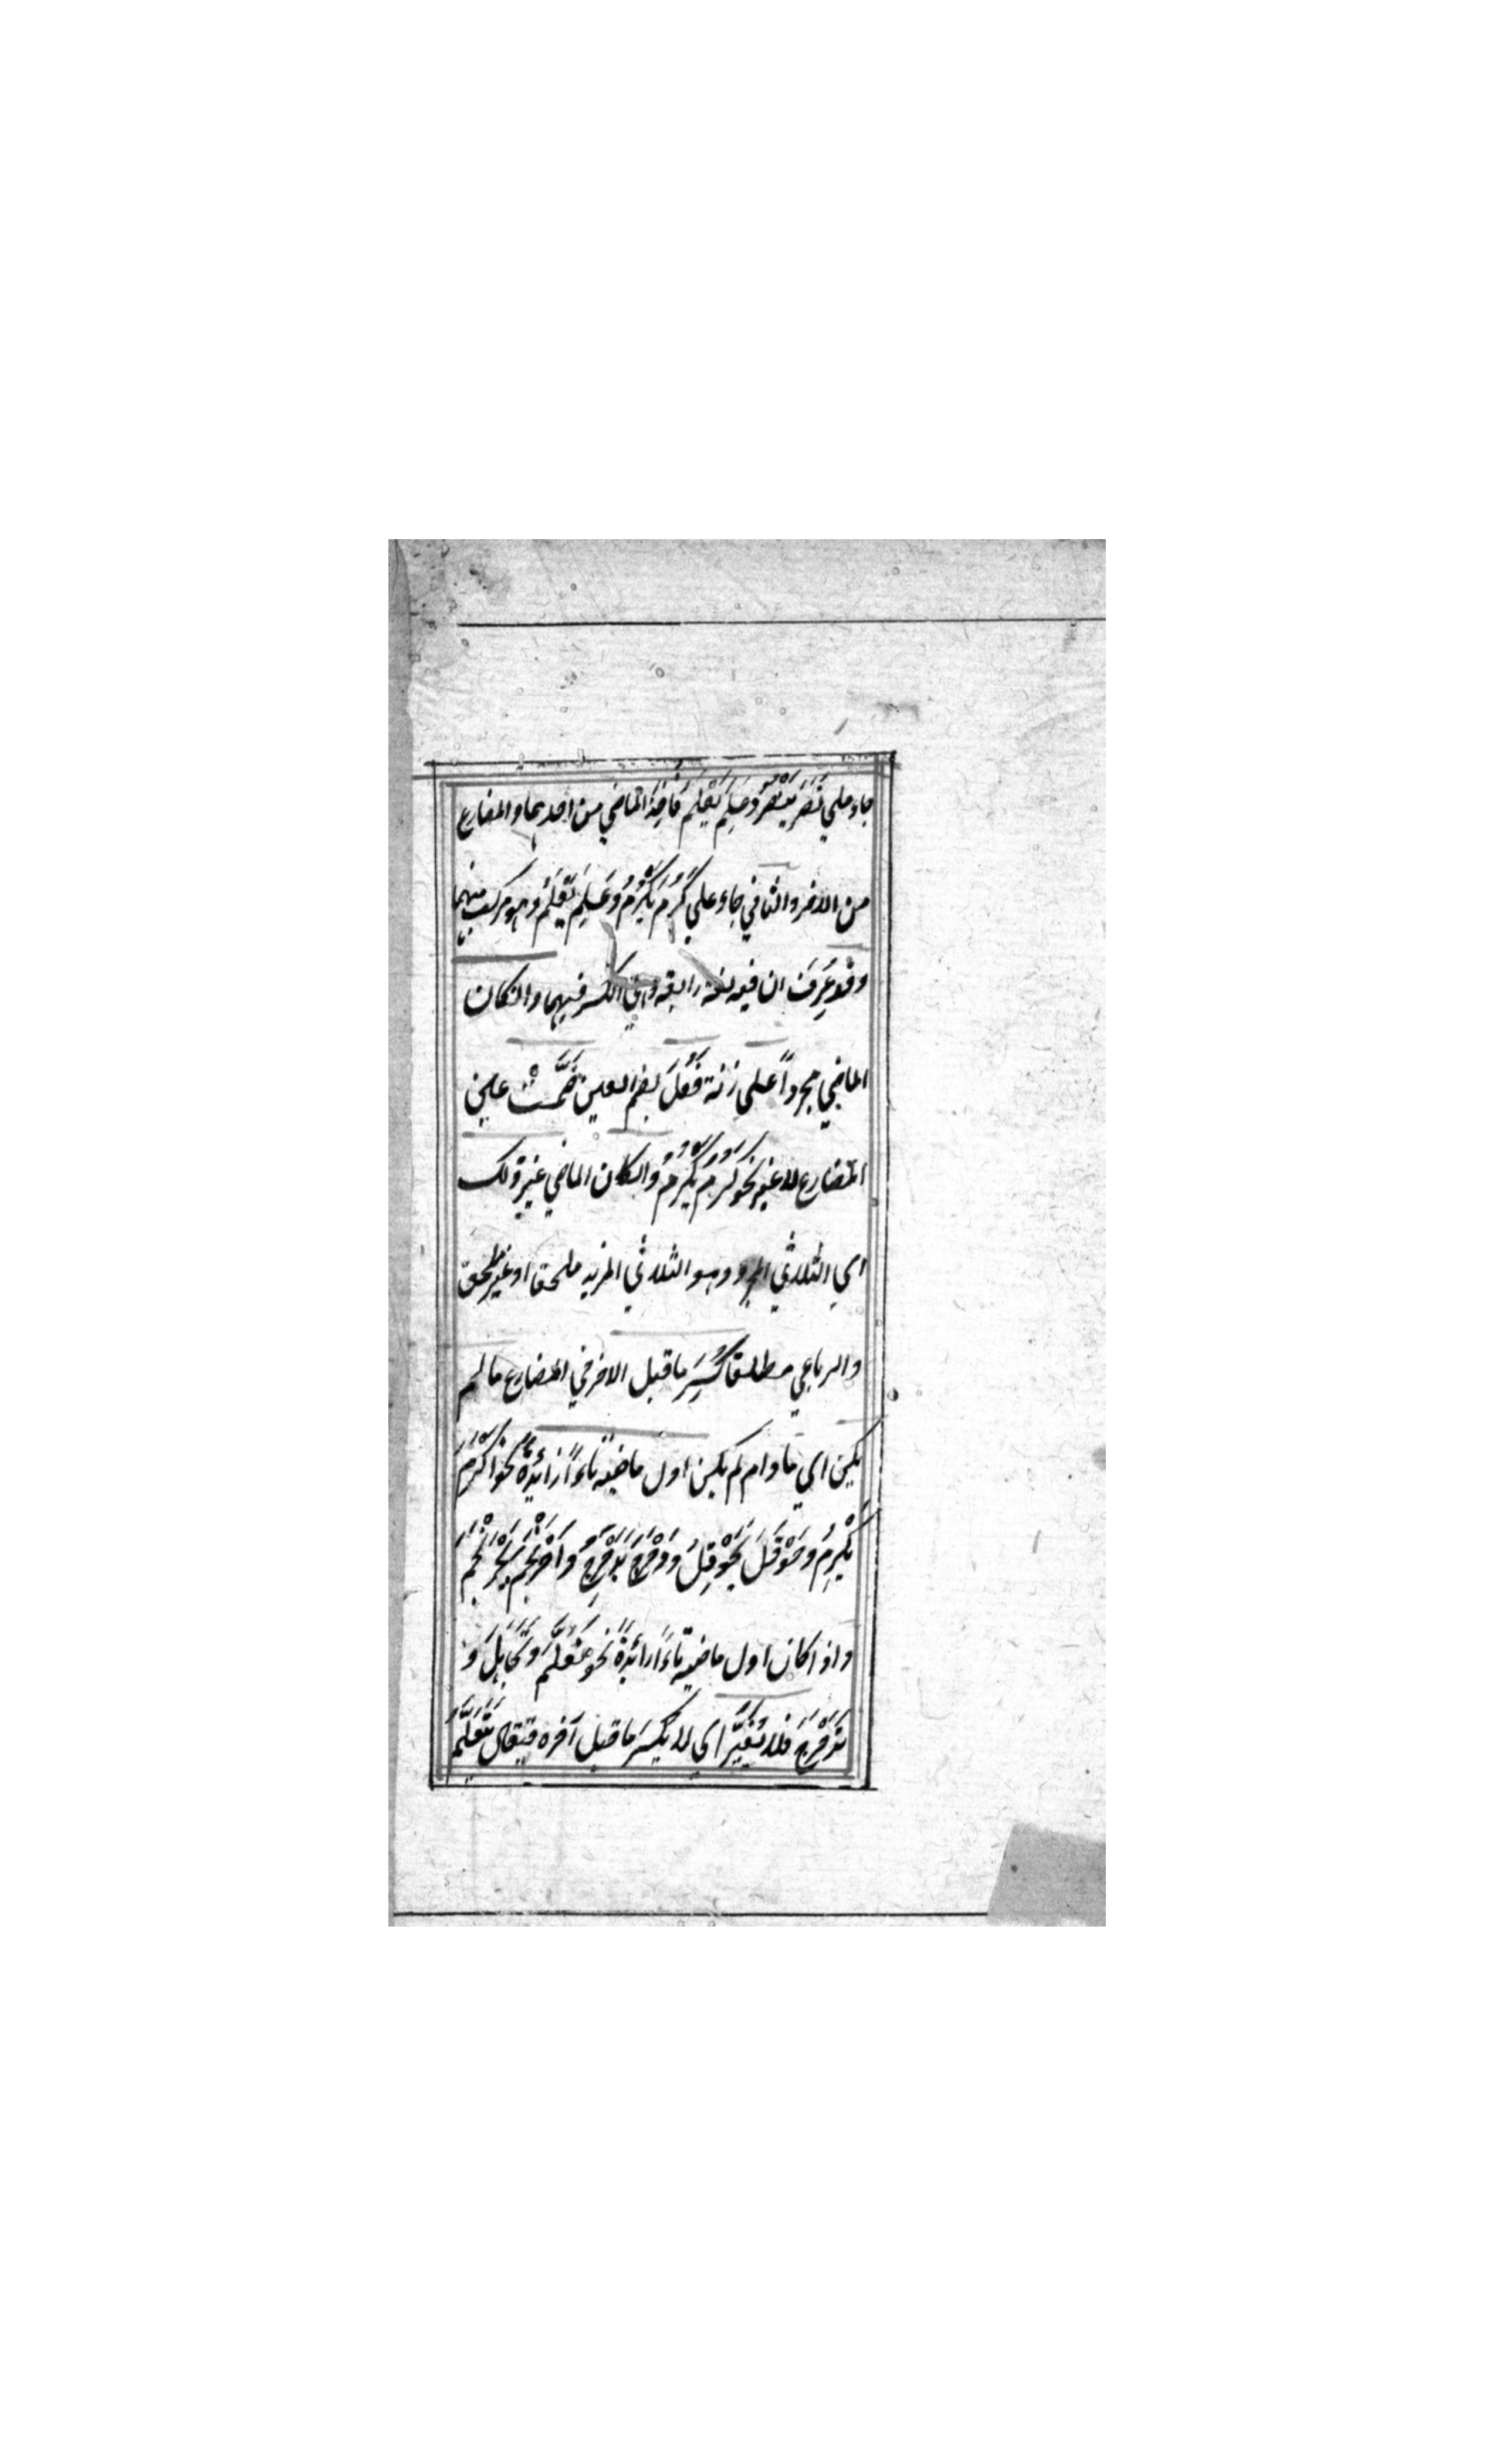 جاء علي نَصَرَ يَنْصُرُ وعَلِمَ يَعْلَمُ فَاُخِذَ الماضي من احدهما والمضارع
من الاخر والثاني جاء علي كَرُمَ يَكْرُمُ وعَلِمَ يَعْلَمُ وهو مركب منهما
وقد عُرِفَ ان فيه لغة رابعة وهي الكسر فيهما وان كان
الماضي مجرداً على زنة فَعُلَ بضم العين ضُمَّتْ عين
المضارع لا غير نحو كَرُمَ يَكْرُمُ وان كان الماضي غير ذلك
اي الثلاثي المجرد وهو الثلاثي المزيد ملحقا او غير ملحق
والرباعي مطلقا كُسِرَ ما قبل الاخر في المضارع ما لم
يكن اي ما دام لم يكن اول ماضيه تاءً زائدةً نحو اَكْرَمَ
يُكْرِمُ وحَوْقَلَ يُحَوْقِلُ ودَحْرَجَ يُدَحْرِجُ واحْرَنْجَمَ يَحْرَنْجِمُ
واذا كان اول ماضيه تاءً زائدةً نحو تَعَلَّمَ وتَجَاهَلَ و
تَدَحْرَجَ فلا تُغَيَّر اي لا يكسر ما قبل آخره فيقال يَتَعَلَّمُ